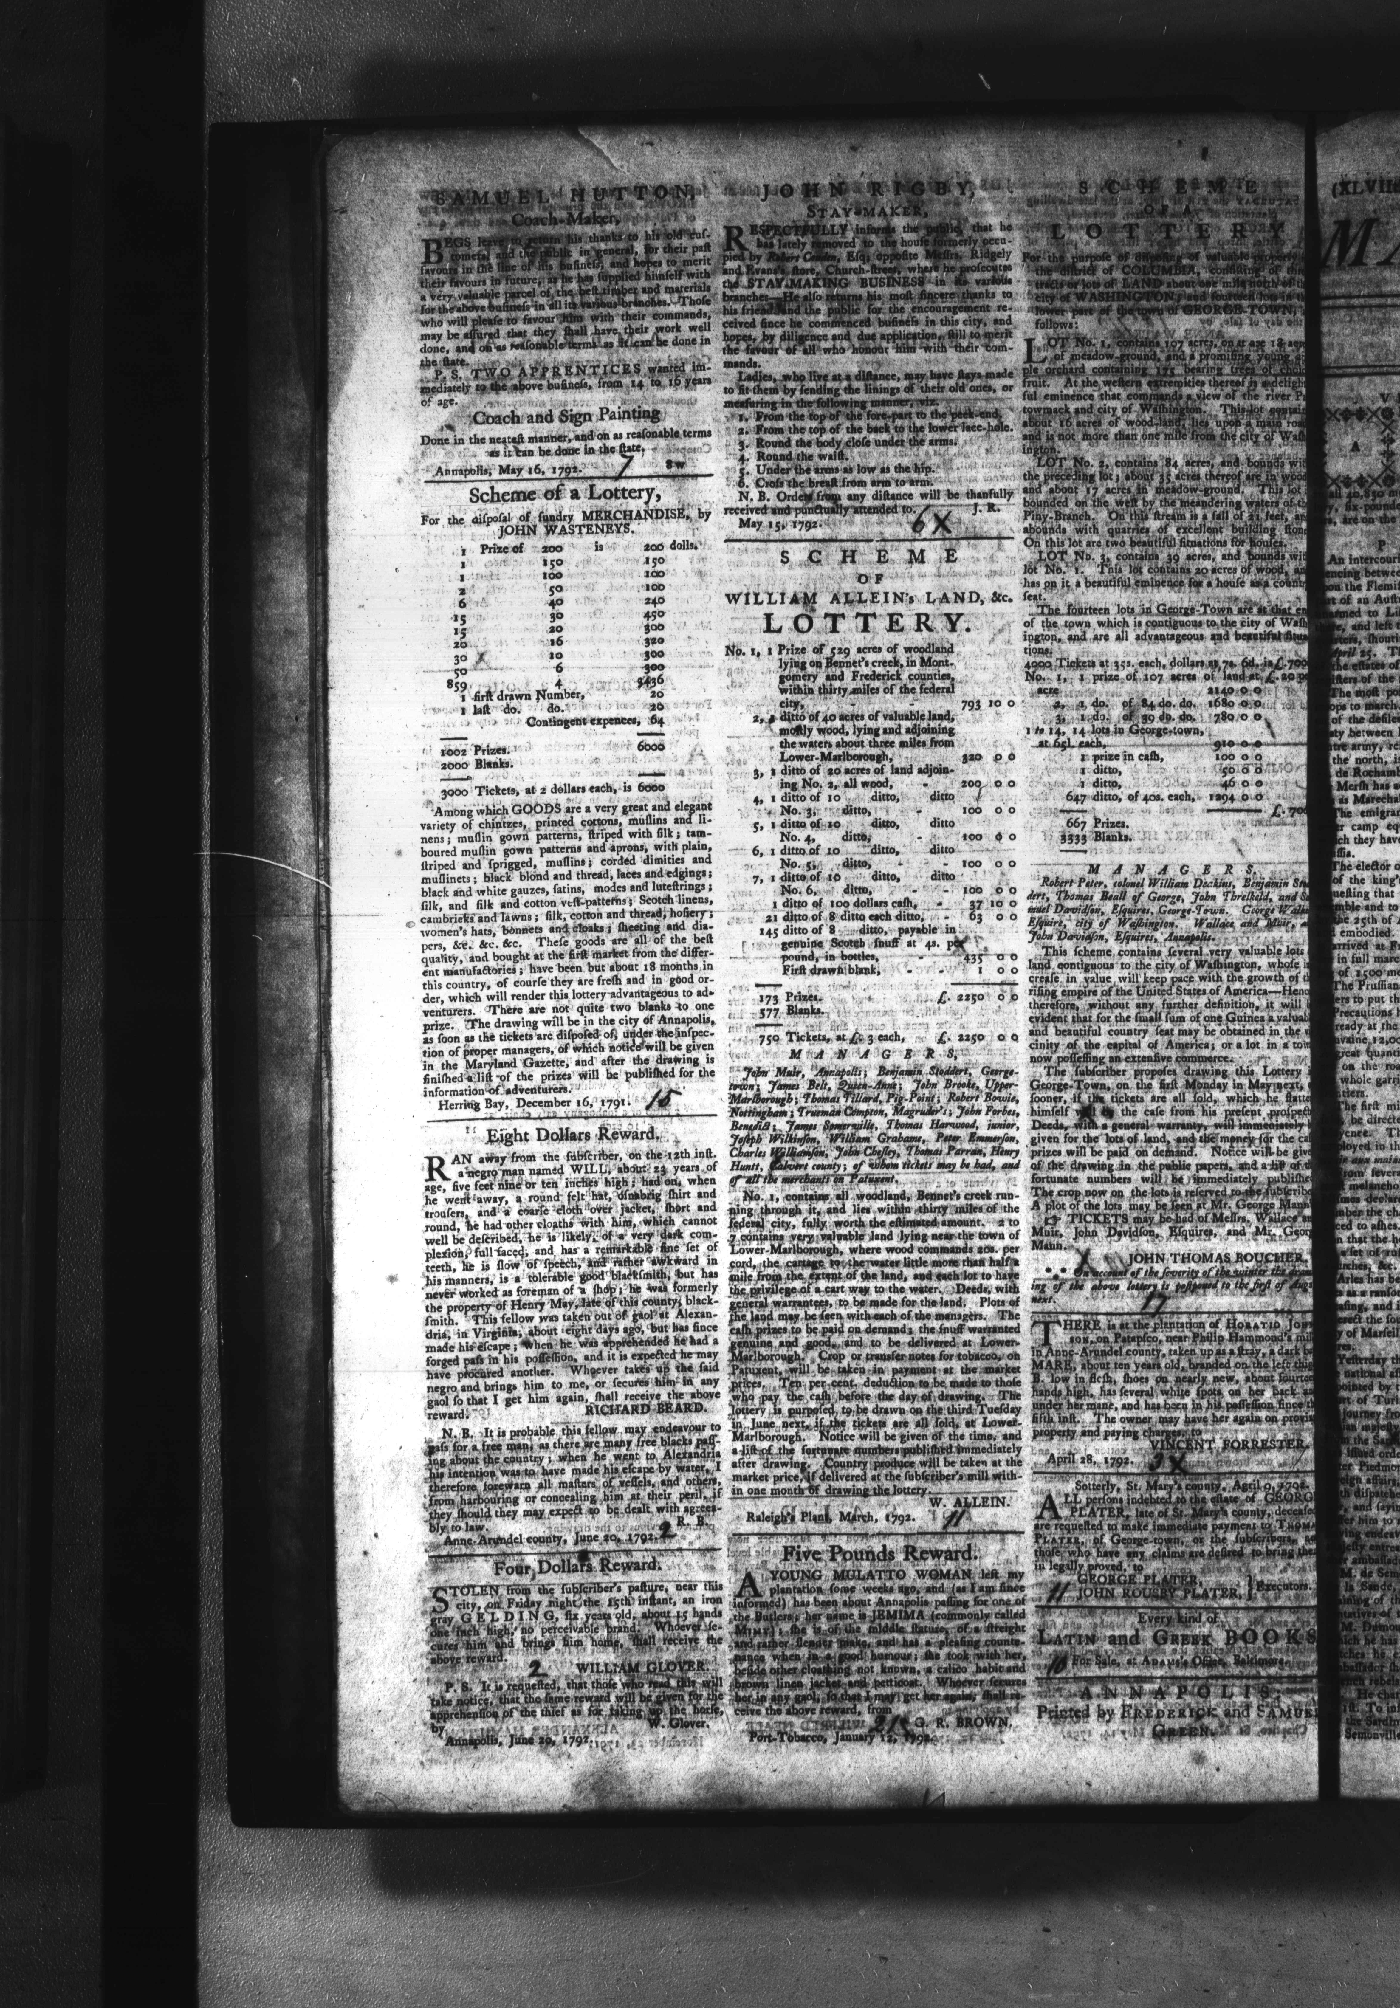 SAMUEL HUTTON,
Coach-Maker,
BEGS leave to return his thanks to his old cus-
tomers, and the public in general, for their past
favours in the line of his business, and hopes to merit
their favours in future, as he has supplied himself with
a very valuable parcel of the best timber and materials
for the above business in all its various branches. Those
who will please to favour him with their commands,
may be assured that they shall have their work well
done, and on as reasonable terms as it can be done in
the state.
P. S. TWO APPRENTICES wanted im-
mediately to the above business, from 14 to 16 years
of age.
Coach and Sign Painting
Done in the neatest manner, and on as reasonable terms
as it can be done in the state.
Annapolis, May 16, 1792. 7 8w
Scheme of a Lottery,
For the disposal of sundry MERCHANDISE, by
JOHN WASTENEYS.
1 Prize of 200 is 200 dolls.
1 150 150
1 100 100
2 50 100
6 40 240
15 30 450
15 20 300
20 16 320
30 10 300
50 6 300
859 4 3436
1 first drawn Number, 20
1 last do. do. 20
Contingent expences, 64
1002 Prizes. 6000
2000 Blanks.
3000 Tickets, at 2 dollars each, is 6000
Among which GOODS are a very great and elegant
variety of chintzes, printed cottons, muslins and li-
nens; muslin gown patterns, striped with silk; tam-
boured muslin gown patterns and aprons, with plain,
striped and sprigged, muslins; corded dimities and
muslinets; black blond and thread, laces and edgings;
black and white gauzes, satins, modes and lutestrings;
silk, and silk and cotton vest-patterns; Scotch linens,
cambricks and lawns; silk, cotton and thread, hosiery;
women's hats, bonnets and cloaks; sheeting and dia-
pers, &c. &c. &c. These goods are all of the best
quality, and bought at the first market from the differ-
ent manufactories; have been but about 18 months in
this country, of course they are fresh and in good or-
der, which will render this lottery advantageous to ad-
venturers. There are not quite two blanks to one
prize. The drawing will be in the city of Annapolis,
as soon as the tickets are disposed of, under the inspec-
tion of proper managers, of which notice will be given
in the Maryland Gazette, and after the drawing is
finished a list of the prizes will be published for the
information of adventurers.
Herring Bay, December 16, 1791. 15
Eight Dollars Reward.
RAN away from the subscriber, on the 12th inst.
a negro man named WILL, about 23 years of
age, five feet nine or ten inches high; had on, when
he went away, a round felt hat, osnabrig shirt and
trousers, and a coarse cloth over jacket, short and
round, he had other cloaths with him, which cannot
well be described, he is likely, of a very dark com-
plexion, full faced, and has a remarkable fine set of
teeth, he is slow of speech, and rather awkward in
his manners, is a tolerable good blacksmith, but has
never worked as foreman of a shop; he was formerly
the property of Henry May, late of this county, black-
smith. This fellow was taken out of gaol at Alexan-
dria, in Virginia, about eight days ago, but has since
made his escape; when he was apprehended he had a
forged pass in his possession, and it is expected he may
have procured another. Whoever takes up the said
negro and brings him to me, or secures him in any
gaol so that I get him again, shall receive the above
reward.
RICHARD BEARD.
N. B. It is probable this fellow may endeavour to
pass for a free man, as there are many free blacks pass-
ing about the country; when he went to Alexandria
his intention was to have made his escape by water, I
therefore forewarn all masters of vessels, and others,
from harbouring or concealing him at their peril, if
they should they may expect to be dealt with agreea-
bly to law. R. B.
Anne-Arundel county, June 20, 1792. 2
Four Dollars Reward.
STOLEN from the subscriber's pasture, near this
city, on Friday night the 15th instant, an iron
gray GELDING, six years old, about 15 hands
one inch high, no perceivable brand. Whoever se-
cures him and brings him home, shall receive the
above reward.
2 WILLIAM GLOVER.
P. S. It is requested, that those who read this will
take notice, that the same reward will be given for the
apprehension of the thief as for taking up the horse,
by W. Glover.
Annapolis, June 20, 1792.
JOHN RIGBY,
STAY-MAKER,
RESPECTFULLY informs the public, that he
has lately removed to the house formerly occu-
pied by Robert Couden, Esq; opposite Messrs. Ridgely
and Evans's store, Church-street, where he prosecutes
the STAY-MAKING BUSINESS in its various
branches—He also returns his most sincere thanks to
his friends and the public for the encouragement re-
ceived since he commenced business in this city, and
hopes, by diligence and due application, still to merit
the favour of all who honour him with their com-
mands.
Ladies, who live at a distance, may have stays made
to fit them by sending the linings of their old ones, or
measuring in the following manner, viz.
1. From the top of the fore-part to the peek-end.
2. From the top of the back to the lower lace-hole.
3. Round the body close under the arms.
4. Round the waist.
5. Under the arms as low as the hip.
6. Cross the breast from arm to arm.
N. B. Orders from any distance will be thankfully
received and punctually attended to. J. R.
May 15, 1792. 6 X
SCHEME
OF
WILLIAM ALLEIN's LAND, &c.
LOTTERY.
No. 1, 1 Prize of 529 acres of woodland
lying on Bennet's creek, in Mont-
gomery and Frederick counties,
within thirty miles of the federal
city, - - 793 10 0
2, 1 ditto of 40 acres of valuable land,
mostly wood, lying and adjoining
the waters about three miles from
Lower-Marlborough, 320 0 0
3, 1 ditto of 20 acres of land adjoin-
ing No. 2, all wood, - 200 0 0
4, 1 ditto of 10 ditto, ditto
No. 3, ditto, - 100 0 0
5, 1 ditto of 10 ditto, ditto
No. 4, ditto, - 100 0 0
6, 1 ditto of 10 ditto, ditto
No. 5, ditto, - 100 0 0
7, 1 ditto of 10 ditto, ditto
No. 6, ditto, - 100 0 0
1 ditto of 100 dollars cash, - 37 10 0
21 ditto of 8 ditto each ditto, - 63 0 0
145 ditto of 8 ditto, payable in
genuine Scotch snuff at 4s. per
pound, in bottles, - 435 0 0
First drawn blank, - 1 0 0
173 Prizes. £. 2250 0 0
577 Blanks.
750 Tickets, at £. 3 each, £. 2250 0 0
MANAGERS,
John Muir, Annapolis; Benjamin Stoddert, George-
town; James Belt, Queen-Anne; John Brooke, Upper-
Marlborough; Thomas Tillard, Pig-Point; Robert Bowie,
Nottingham; Trueman Compton, Magruder's; John Forbes,
Benedict; James Somerville, Thomas Harwood, junior,
Joseph Wilkinson, William Grahame, Peter Emmerson,
Charles Williamson, John Chesley, Thomas Parran, Henry
Huntt, Calvert county; of whom tickets may be had, and
of all the merchants on Patuxent.
No. 1, contains all woodland, Bennet's creek run-
ning through it, and lies within thirty miles of the
federal city, fully worth the estimated amount. 2 to
7 contains very valuable land lying near the town of
Lower-Marlborough, where wood commands 20s. per
cord, the cartage to the water little more than half a
mile from the extent of the land, and each lot to have
the privilege of a cart way to the water. Deeds, with
general warrantees, to be made for the land. Plots of
the land may be seen with each of the managers. The
cash prizes to be paid on demand; the snuff warranted
genuine and good, and to be delivered at Lower-
Marlborough. Crop or transfer notes for tobacco, on
Patuxent, will be taken in payment at the market
prices. Ten per cent. deduction to be made to those
who pay the cash before the day of drawing. The
lottery is purposed to be drawn on the third Tuesday
in June next, if the tickets are all sold, at Lower-
Marlborough. Notice will be given of the time, and
a list of the fortunate numbers published immediately
after drawing. Country produce will be taken at the
market price, if delivered at the subscriber's mill with-
in one month of drawing the lottery.
W. ALLEIN.
Raleigh's Plant, March, 1792. 11
Five Pounds Reward.
A YOUNG MULATTO WOMAN left my
plantation some weeks ago, and (as I am since
informed) has been about Annapolis passing for one of
the Butlers; her name is JEMIMA (commonly called
MIMY); she is of the middle stature, of a streight
and rather slender make, and has a pleasing counte-
nance when in a good humour; she took with her,
beside other cloathing not known, a calico habit and
brown linen jacket and petticoat. Whoever secures
her in any gaol, so that I may get her again, shall re-
ceive the above reward, from
G. R. BROWN.
Port-Tobacco, January 12, 1792.
SCHEME
OF A
LOTTERY
For the purpose of disposing of valuable property
the district of COLUMBIA, consisting of
tracts or lots of LAND about one mile north of
city of WASHINGTON; and fourteen lots in
lower part of the town of GEORGE-TOWN,
follows:
LOT No. 1, contains 107 acres, on it are 18
of meadow-ground, and a promising young
ple orchard containing 175 bearing trees of
fruit. At the western extremities thereof is a
ful eminence that commands a view of the river
towmack and city of Washington. This lot
about 16 acres of wood-land, lies upon a main
and is not more than one mile from the city of
ington.
LOT No. 2, contains 84 acres, and bounds
the preceding lot; about 35 acres thereof are in
and about 17 acres in meadow-ground. This lot
bounded on the west by the meandering waters of
Piny-Branch. On this stream is a fall of 21 feet,
abounds with quarries of excellent building
On this lot are two beautiful situations for houses.
LOT No. 3, contains 39 acres, and bounds
lot No. 1. This lot contains 20 acres of wood,
has on it a beautiful eminence for a house as a
seat.
The fourteen lots in George-Town are at that
of the town which is contiguous to the city of
ington, and are all advantageous and beautiful
tions.
4000 Tickets at 35s. each, dollars at 7s. 6d. is £. 700
No. 1, 1 prize of 107 acres of land at £. 20
acre 2140 0 0
2, 1 do. of 84 do. do. 1680 0 0
3, 1 do. of 39 do. do. 780 0 0
1 to 14, 14 lots in George-town,
at 65l. each, 910 0 0
1 prize in cash, 100 0 0
1 ditto, 50 0 0
1 ditto, 46 0 0
647 ditto, of 40s. each, 1294 0 0
£. 700
667 Prizes.
3333 Blanks.
MANAGERS,
Robert Peter, colonel William Deakins, Benjamin
dert, Thomas Beall of George, John Threlkeld, and
muel Davidson, Esquires, George-Town. George
Esquire, city of Washington. Wallace and Muir,
John Davidson, Esquires, Annapolis.
This scheme contains several very valuable lots
land, contiguous to the city of Washington, whose
crease in value will keep pace with the growth of
rising empire of the United States of America—
therefore, without any further definition, it will
evident that for the small sum of one Guinea a
and beautiful country seat may be obtained in the
cinity of the capital of America; or a lot in a
now possessing an extensive commerce.
The subscriber proposes drawing this Lottery
George-Town, on the first Monday in May next,
sooner, if the tickets are all sold, which he
himself will be the case from his present
Deeds, with a general warranty, will immediately
given for the lots of land, and the money for the
prizes will be paid on demand. Notice will be
of the drawing in the public papers, and a list of
fortunate numbers will be immediately
The crop now on the lots is reserved to the
A plot of the lots may be seen at Mr. George
TICKETS may be had of Messrs. Wallace
Muir, John Davidson, Esquires, and Mr.
Mann.
JOHN THOMAS BOUCHER.
On account of the severity of the winter the
ing of the above lottery is postponed to the first of
next. 17
THERE is at the plantation of HORATIO
SON, on Patapsco, near Philip Hammond's
in Anne-Arundel county, taken up as a stray, a dark
MARE, about ten years old, branded on the left
B. low in flesh, shoes on nearly new, about
hands high, has several white spots on her back
under her mane, and has been in his possession since
fifth inst. The owner may have her again on
property and paying charges, to
VINCENT FORRESTER.
April 28, 1792. 3 X
Sotterly, St. Mary's county, April 9, 1792.
ALL persons indebted to the estate of
PLATER, late of St. Mary's county,
are requested to make immediate payment to
PLATER, of George-town, or the subscribers,
those who have any claims are desired to bring
in legally proved, to
GEORGE PLATER,
JOHN ROUSBY PLATER, } Executors.
11
Every kind of
LATIN and GREEK BOOKS
For Sale, at ADAMS's Office, Baltimore.
ANNAPOLIS:
Printed by FREDERICK and SAMUEL
GREEN.